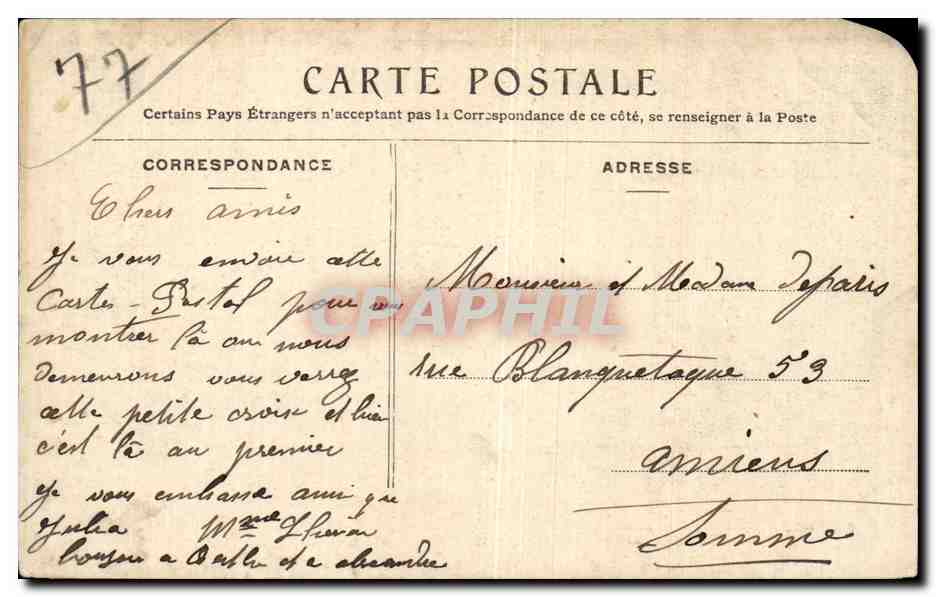 77
CARTE POSTALE
Certains Pays Étrangers n'acceptant pas la Correspondance de ce côté, se renseigner à la Poste
CORRESPONDANCE
Chers amis
Je vous envoie cette
Cartes-Postal pour vous
montrer là ou nous
demeurons vous verrez
cette petite croix et bien
c'est là au premier
Je vous embrasse ainsi que
Julia Mme
a et a alexandre
ADRESSE
Monsieur et Madame Deparis
rue Blanquetaque 53
amiens
Somme
CPAPHIL